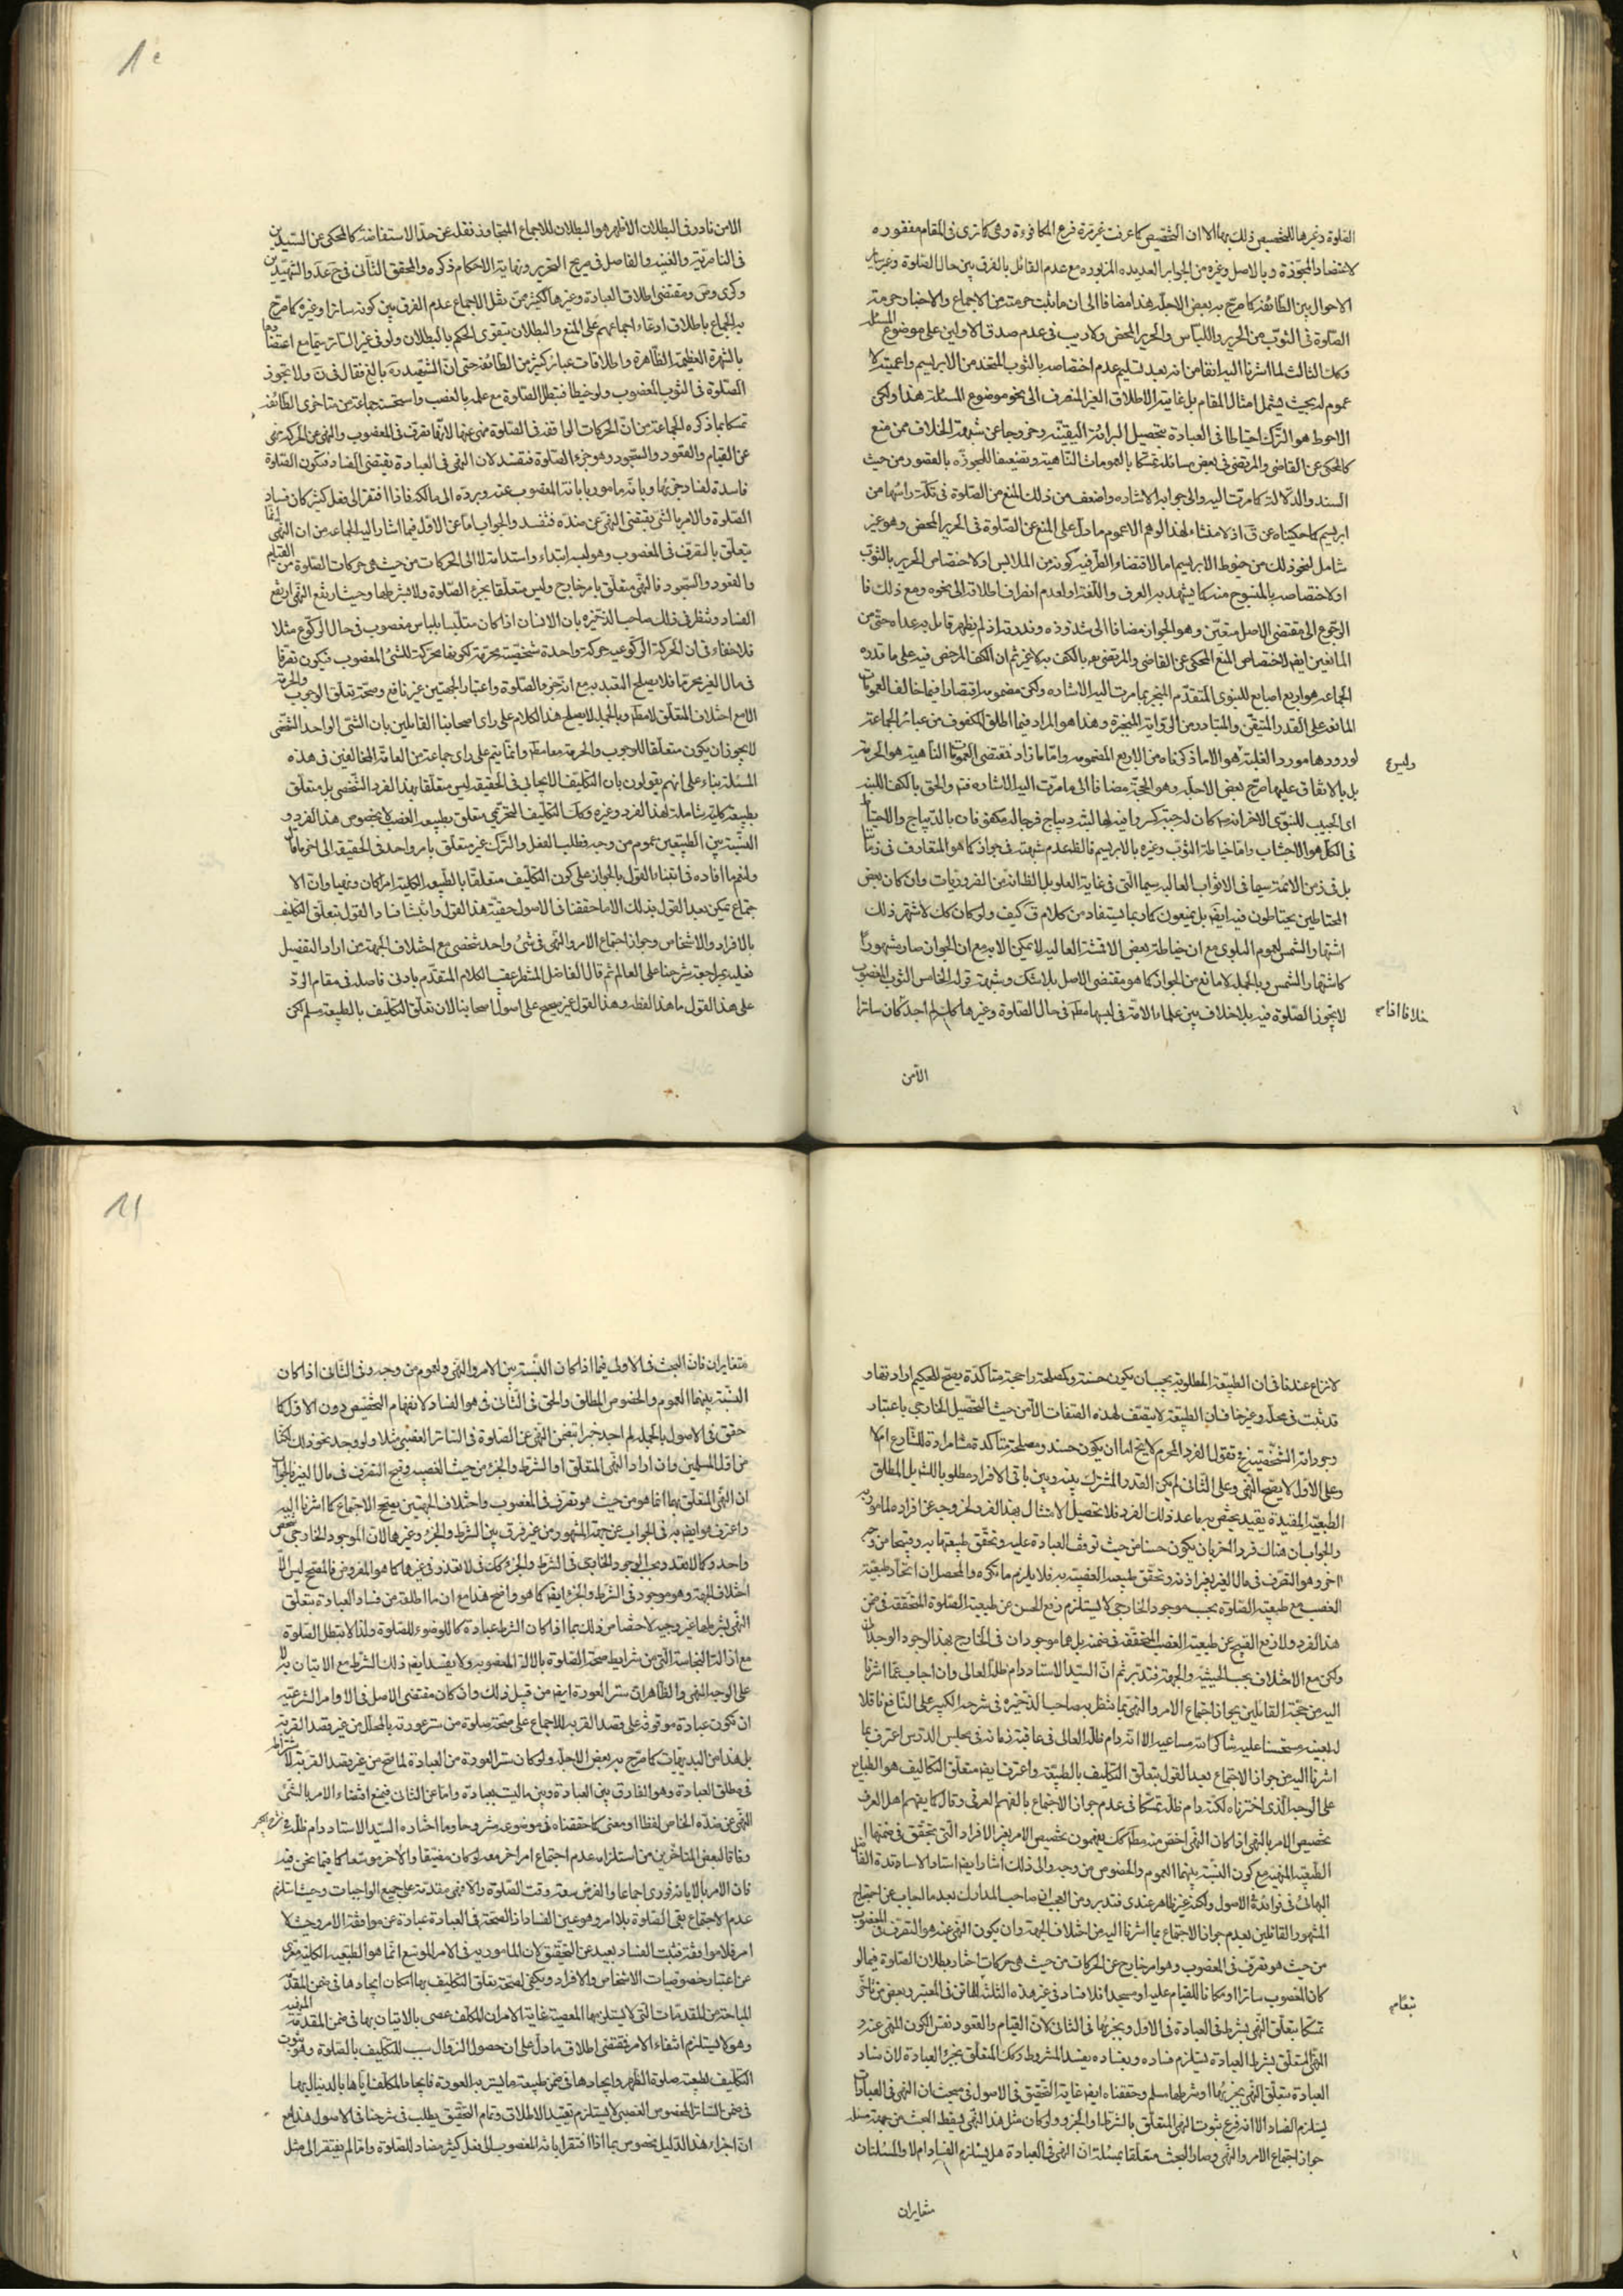 الصلوة وغيرها للتخصيص ذلك بها الا ان التخصيص كما عرفت غير مرة فرع المكافوءة وهى كما ترى فى المقام مفقوده
الاحوال بين الطائفة كما صرح به بعض الاجلة هذا مضافا الى ان ما يثبت حرمته من الاجماع والاخبار حرمة
الصلوة فى الثوب من الحرير واللباس والحرير المحض ولا ريب فى عدم صدق الاولين على موضوع المسئلة
وكك الثالث لما اشرنا اليه انفا من انه بعد تسليم عدم اختصاصه بالثوب المتخذ من الابريسم واعميته لا
عموم له بحيث يشمل امثال المقام بل غايته الاطلاق الغير المنصرف الى نحو موضوع المسئلة هذا ولكن
الاحوط هو الترك احتياطا فى العبادة بتحصيل البرائة اليقينية وخروجا عن شبهة الخلاف ممن منع
كالمحكى عن القاضى والمرتضى فى بعض مسائله تمسكا بالعمومات الناهية وتضعيفا للمجوزه بالقصور من حيث
السند والدلالة كما مرت اليه والى جوابه الاشاره واضعف من ذلك المنع من الصلوة فى تكة راسها من
ابريسم كما حكيناه عن ق اذ لا منشاء لهذا الوهم الا عموم ما دل على المنع عن الصلوة فى الحرير المحض وهو غير
شامل لنحو ذلك من خيوط الابريسم اما لاقتضاء الظرفية كونه من الملابس او لاختصاص الحرير بالثوب
او لاختصاصه بالمنسوج منه كما يشهد به العرف واللغة او لعدم انصراف اطلاقه الى نحوه ومع ذلك فا
الرجوع الى مقتضى الاصل متعين وهو الجواز مضافا الى شذوذه وندرته اذ لم يظهر قائل به عداه حتى من
المانعين ايضا لاختصاص المنع المحكى عن القاضى والمرتضى به بالكف به لا غير ثم ان الكف المرخص فيه على ما قدره
الجماعه هو اربع اصابع للنبوى المتقدم المنجبر بما مرت اليه الاشاره ولكن مضمومه اقتصارا فيما خالف العمومات
المانعة على القدر المتيقن والمتبادر من الرواية المنجبرة وهذا هو المراد فيما اطلق المكفوف من عبائر الجماعة
لورودها مورد الغلبة هو الا ما ذكرناه من الاربع المضمومه واما ما زاد فمقتضى العمومات الناهية هو الحرمة
وليس ع
بل بالاتفاق عليها صرح بعض الاجلة وهو الحجة مضافا الى ما مرت اليه الاشاره فتم والحق بالكف اللبنة
اى الجيب للنبوى الاخر انه ص كان له جبة كسروانية لها لبنة ديباج فرجاها مكفوفان بالديباج والاحتياط
فى الكل هو الاجتناب واما خياطة الثوب وغيره بالابريسم فالظ عدم شبهة فى جوازه كما هو المتعارف فى زماننا
بل فى زمن الائمة سيما فى الاثواب العالية سيما التى فى غاية العلو بل الظ انه من الضروريات وان كان بعض
المحتاطين يحتاطون فيه ايضا بل يمنعون كما ربما يستفاد من كلام ق كيف ولو كان كك لاشتهر ذلك
اشتهار الشمس لعموم البلوى مع ان خياطة بعض الاقمشة العاليه لا يمكن الا به مع ان الجواز صار مشهورا
كاشتهار الشمس وبالجمله لا مانع من الجواز كما هو مقتضى الاصل بلا شك وشبهة قوله الخامس الثوب المغصوب
لا يجوز الصلوة فيه بلا خلاف بين علماء الامة فى لبسها مطلقا فى حال الصلوة وغيرها كان لم اجد كان ساترا
الامن
الامن نادر فى البطلان الاظهر هو البطلان للاجماع المتجاوز نقله عن حد الاستفاضة كالمحكى عن السيدين
فى الناصرية والغنية والفاضل فى صريح التحرير ونهاية الاحكام ذكره والمحقق الثانى فى جع عد والشهيدين
بالشهرة العظيمة الظاهرة واطلاقات عبائر كثير من الطائفة حتى ان الشهيد ره بالغ فقال فى ن ولا تجوز
الصلوة فى الثوب المغصوب ولو خيطا فتبطل الصلوة مع علمه بالغصب واستحسنه جماعة من متاخرى الطائفة
تمسكا بما ذكره الجماعة من ان الحركات الواقعة فى الصلوة منهى عنها لانها تصرف فى المغصوب والنهى عن الحركة نهى
عن القيام والقعود والسجود وهو جزء الصلوة فتفسد لان النهى فى العبادة يقتضى الفساد فتكون الصلوة
فاسدة لفساد جزئها وبانه مامور بابانة المغصوب عنه ورده الى مالكه فاذا افتقر الى فعل كثير كان فساد
الصلوة والامر بالشئ يقتضى النهى عن ضده فتفسد والجواب اما عن الاول فيما اشار اليه الجماعة من ان النهى انما
يتعلق بالتصرف فى المغصوب وهو لبسه ابتداء واستدامة لا الى الحركات من حيث هى حركات الصلوة من القيام
والقعود والسجود فالنهى متعلق بامر خارج وليس متعلقا بجزء الصلوة ولا بشرطها وحيث ارتفع النهى ارتفع
الفساد وتنظر فى ذلك صاحب الذخيرة بان الانسان اذا كان متلبسا بلباس مغصوب فى حال الركوع مثلا
فلا خفاء فى ان الحركة الركوعية حركة واحدة شخصية محرمة لكونها محركة للشئ المغصوب فيكون تصرفا
فى مال الغير محرما فلا يصلح التعبد به مع انه جزء الصلوة واعتبار الجهتين غير نافع وصحة تعلق الوجوب والحرمة
الا مع اختلاف المتعلق لا مطلقا وبالجملة لا يصلح هذا الكلام على راى اصحابنا القائلين بان الشئ الواحد الشخصى
لا يجوز ان يكون متعلقا للوجوب والحرمة معا مطلقا وانما يتم على راى جماعة من العامة المخالفين فى هذه
المسئلة بناء على انهم يقولون بان التكليف الايجابى فى الحقيقة ليس متعلقا بهذا الفرد الشخصى بل متعلق
بطبيعة كلية شاملة لهذا الفرد وغيره وكك التكليف التحريمى متعلق بطبيعة الغصب لا بخصوص هذا الفرد و
النسبة بين الطبيعتين عموم من وجه فطلب الفعل والترك غير متعلق بامر واحد فى الحقيقة الى اخر ما قال
ولنعم ما افاده فى ابتناء القول بالجواز على كون التكليف متعلقا بالطبيعة الكلية امرا كان ونهيا وان الا
جتماع ممكن بعد القول بذلك الا ما حققنا فى الاصول حقية هذا القول واثبتنا فساد القول بتعلق التكليف
بالافراد والاشخاص وجواز اجتماع الامر والنهى فى شئ واحد شخصى مع اختلاف الجهة من اراد التفصيل
فعليه بمراجعة شرحنا على المعالم ثم قال الفاضل المتنظر عقيب الكلام المتقدم بادنى فاصلة فى مقام الرد
على هذا القول ما هذا لفظه وهذا القول غير صحيح على اصول اصحابنا لان تعلق التكليف بالطبيعة مسلم لكن
لا نزاع عندنا فى ان الطبيعة المطلوبة يجب ان يكون حسنة ومصلحة راجحة متاكدة يصح للحكيم ارادتها و
قد ثبت فى محله وغير خاف ان الطبيعة لا تتصف لهذه الصفات الا من حيث التحصل الخارجى باعتبار
وجوداته الشخصية نقول الفرد المحرم لا يخ اما ان يكون حسنه ومصلحة متاكدة مرادة للشارع ام لا
وعلى الاول لا يصح النهى وعلى الثانى لم يكن القدر المشترك بينه وبين باقى الافراد مطلوبا للشارع بل المطلق
الطبيعة المقيدة بقيد يختص به ما عدا ذلك الفرد فلا تحصل الامتثال بهذا الفرد لخروجه عن افراد المامور به
اخر وهو التصرف فى مال الغير بغير اذنه وتحقق طبيعة الغصبية به فلا يلزم ما ذكره والمحصل ان اتحاد طبيعة
الغصب مع طبيعة الصلوة بحسب موجود الخارجى لا يستلزم رفع الحسن عن طبيعة الصلوة المتحققة فى ضمن
هذا الفرد ولا رفع القبح عن طبيعة الغصب المتحققة فى ضمنه بل هما موجودان فى الخارج بهذا الوجود الوحدانى
ولكن مع الاختلاف بحسب الحيثية والجهة فتدبر ثم ان السيد الاستاد دام ظله العالى وان اجاب عما اشرنا
اليه من حجة القائلين بجواز اجتماع الامر والنهى بما تنظر به صاحب الذخيرة فى شرحه الكبير على النافع ناقلا
اشرنا اليه من جواز الاجتماع بعد القول بتعلق التكليف بالطبيعة واعترف ايضا متعلق التكاليف هو الطبايع
على الوجه الذى اخترناه لكنه دام ظله تمسك فى عدم جواز الاجتماع بالفهم العرفى وقال كما يفهم اهل العرف
تخصيص الامر بالنهى اذا كان النهى اخص منه مطلقا كك يفهمون تخصيص الامر بغير الافراد التى تتحقق فى ضمنها
المشهور القائلين بعدم جواز الاجتماع بما اشرنا اليه من اختلاف الجهة وان يكون النهى عنه هو التصرف فى المغصوب
من حيث هو تصرف فى المغصوب وهو امر خارج عن الحركات من حيث هى حركات اختار بطلان الصلوة فيما لو
كان المغصوب ساترا او مكانا للقيام عليه او مسجدا فلا فساد فى غير هذه الثلثة للماتن فى المعتبر وبعض من تاخر
تمسكا بتعلق النهى بشرط فى العبادة فى الاول وبجزئها فى الثانى لان القيام والقعود نفس الكون المنهى عنه و
النهى المتعلق بشرط العبادة يستلزم فساده وبفساده يفسد المشروط وكك المتعلق بجزء العبادة لان فساد
العبادة بتعلق النهى بجزئها او شرطها مسلم وحققناه ايضا غاية التحقيق فى الاصول فى مبحث ان النهى فى العبادات
يستلزم الفساد الا انه فرع ثبوت النهى المتعلق بالشرط او الجزء ولو كان مثل هذا النهى يسقط البحث من جهة مسئلة
جواز اجتماع الامر والنهى وصار البحث متعلقا بمسئلة ان النهى فى العبادة هل يستلزم الفساد ام لا والمسئلتان
متغايران
متغايران فان البحث فى الاولى فيما اذا كان النسبة بين الامر والنهى والعموم من وجه وفى الثانى اذا كان
النسبة بينهما العموم والخصوص المطلق والحق فى الثانى هو الفساد لانفهام التخصيص دون الاول كما
حقق فى الاصول بالجملة لم اجد خبرا يتضمن النهى عن الصلوة فى الساتر الغصبى مثلا ولو وجد نحو ذلك لكنا
من اول المسلمين وان اراد النهى المتعلق او الشرط والجزء من حيث الغصبية وقبح التصرف فى مال الغير فالجواب
ان النهى المتعلق بهما انما هو من حيث هو تصرف فى المغصوب واختلاف الجهتين يصحح الاجتماع كما اشرنا اليه
واعترف هو ايضا به فى الجواب عن حجة المشهور من غير فرق بين الشرط والجزء وغيرها لان الموجود الخارجى شخص
اختلاف الجهة وهو موجود فى الشرط والجزء ايضا كما هو واضح هذا مع ان ما اطلقه من فساد العبادة بتعلق
النهى بشرطها غير وجيه لاختصاص ذلك بما اذا كان الشرط عبادة كالوضوء للصلوة ولذا لا تبطل الصلوة
مع ازالة النجاسة التى من شرايط صحة الصلوة بالالة المغصوبة ولا يفسد ايضا ذلك الشرط مع الاتيان به
على الوجه المنهى والظاهر ان ستر العورة ايضا من قبيل ذلك وان كان مقتضى الاصل فى الاوامر الشرعية
ان تكون عبادة موقوفة على قصد القربة للاجماع على صحة صلوة من ستر عورته بالمحلل من غير قصد القربة
بل هذا من البديهيات كما صرح به بعض الاجلة ولو كان ستر العورة من العبادة لما صح من غير قصد القربة لاشتراطه
فى مطلق العبادة وهو الفارق بين العبادة وبين ما ليست بعبادة واما عن الثانى فبمنع اقتضاء الامر بالشئ
النهى عن ضده الخاص لفظا او معنى كما حققناه فى موضوعه مشروحا وما اختاره السيد الاستاد دام ظله
وفاقا لبعض المتاخرين من استلزامه عدم اجتماع امر اخر معه لو كان مضيقا والاخر موسعا كما فيما نحن فيه
فان الامر بالابانة فورى اجماعا والفرض سعة وقت الصلوة والا فهى مقدمة على جميع الواجبات وحيث استلزم
عدم الاجتماع بقى الصلوة بلا امر وهو عين الفساد اذ الصحة فى العبادة عبارة عن موافقة الامر وحيث لا
امر فلا موافقة فثبت الفساد بعيد عن التحقيق لان المامور به فى الامر الموسع انما هو الطبيعة الكلية معرى
عن اعتبار خصوصيات الاشخاص والافراد ويكفى لصحة تعلق التكليف بها امكان ايجادها فى ضمن المقدمة
المباحة من المقدمات التى لا يستلزمها المعصية غاية الامر ان المكلف عصى بالاتيان بها فى ضمن المقدمة المنهية
وهو لا يستلزم انتفاء الامر فمقتضى اطلاق ما دل على ان حصول الزوال سبب للتكليف بالصلوة وهو ثبوت
التكليف بطبيعة صلوة الظهر وايجادها فى ضمن طبيعة ما يستر به العورة فايجاد المكلف اياها بالدنيا اليهما
فى ضمن الساتر المخصوص الغصبى لا يستلزم تقييد الاطلاق وتمام التحقيق يطلب فى شرحنا فى الاصول هذا مع
ان اجراء هذا الدليل مخصوص بما اذا افتقر ابانة المغصوب الى فعل كثير مضاد للصلوة واما لم يفتقر الى مثل